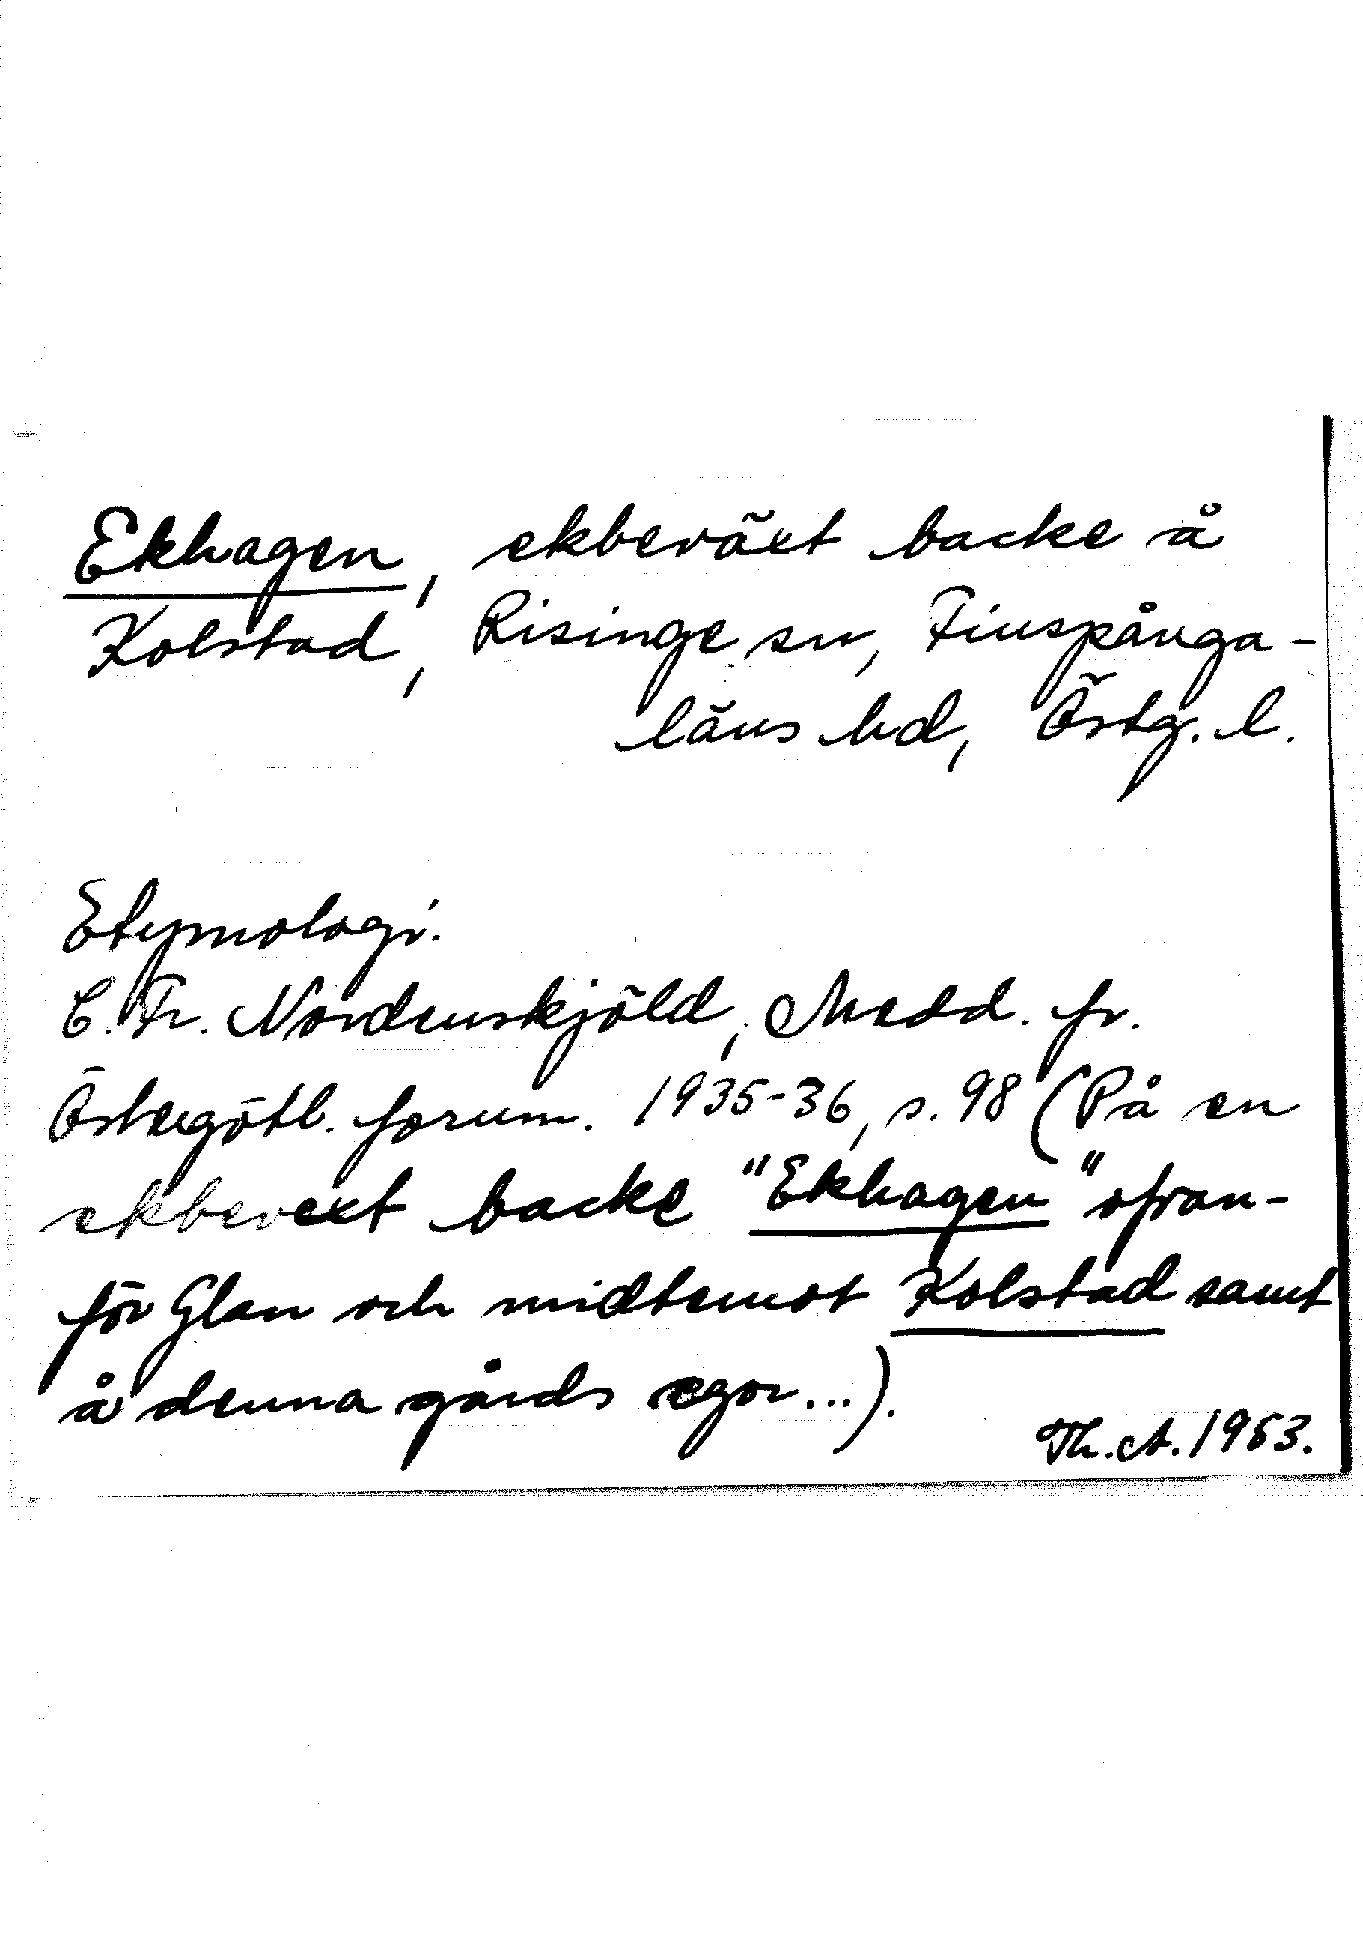 Ekhagen, ekbeväxt backe å
Kolstad, Risinge sn, Finspånga-
läns hd, Östg. l.
Etymologi.
C. Fr. Nordenskjöld, Medd. fr.
Östergötl. fornm. 1935-36, s. 98 (På en
ekbevext backe "Ekhagen" ofvan-
för Glan och midtemot Kolstad samt
å denna gårds egor...).
Th. A. 1963.